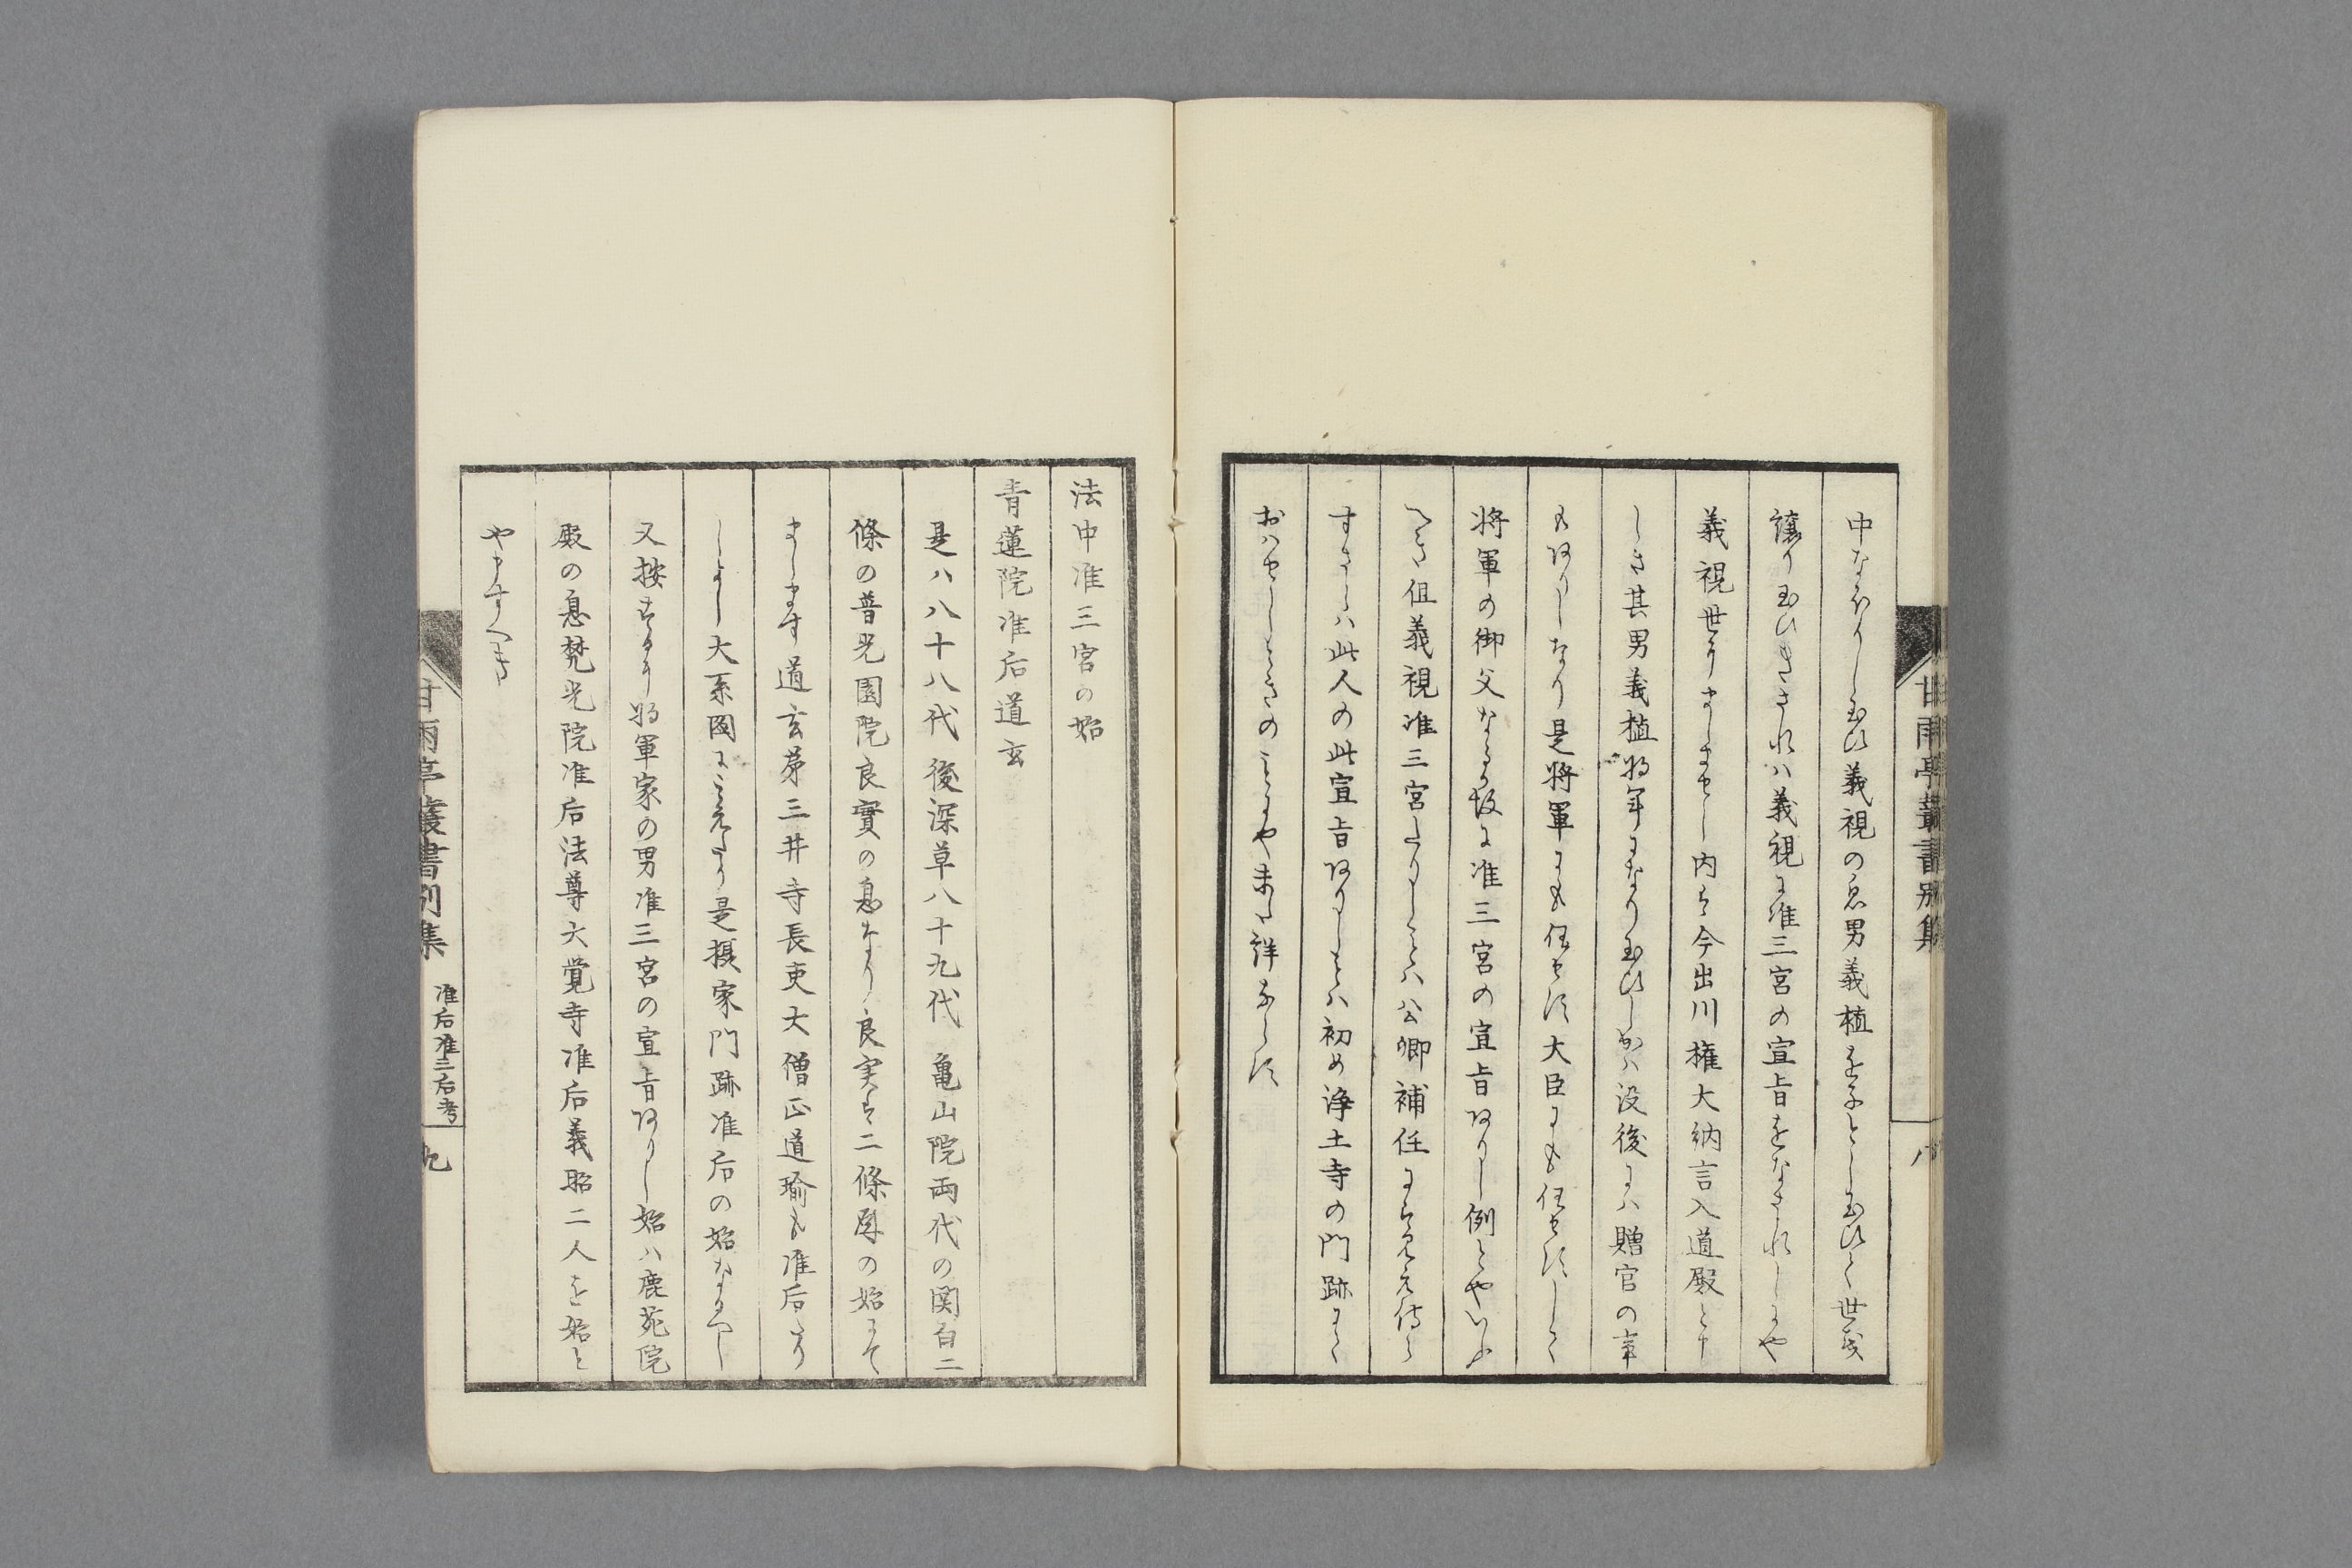 甘雨亭叢書別集
八
中なほりし玉ひ義視の息男義植を子とし玉ひて世を
譲り玉ひきされハ義視に准三宮の宣旨をなされしにや
義視世におましませし内は今出川権大納言入道殿と
しき其男義植将軍になり玉ひしかハ没後にハ贈官の事
もありしなり是将軍にも任せす大臣にも任せすして
将軍の御父なる故に准三宮の宣旨ありし例とやいふ
へき但義視准三宮たりしことハ公卿補任には見え侍ら
すさらハ此人の此宣旨ありしことハ初め浄土寺の門跡にて
おハせしときのことにや未た詳ならす
法中准三宮の始
青蓮院准后道玄
是ハ八十八代後深草八十九代亀山院両代の関白二
條の普光園院良實の息なり良実は二條殿の始にて
まします道玄弟三井寺長吏大僧正道瑜も准后たり
しよし大系図にみえたり是摂家門跡准后の始なるへし
又按するに将軍家の男准三宮の宣旨ありし始ハ鹿苑院
殿の息梵光院准后法尊大覚寺准后義昭二人を始と
やすへき
甘雨亭叢書別集
准后准三后考
九